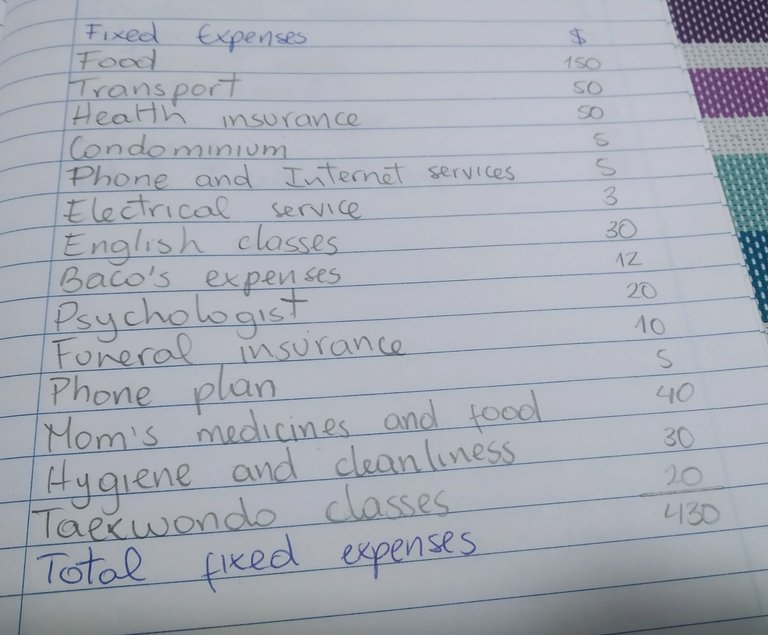 Fixed Expenses $
Food 150
Transport 50
Health insurance 50
Condominium 5
Phone and Internet services 5
Electrical service 3
English classes 30
Baco's expenses 12
Psychologist 20
Funeral insurance 10
Phone plan 5
Mom's medicines and food 40
Hygiene and cleanliness 30
Taekwondo classes 20
Total fixed expenses 430